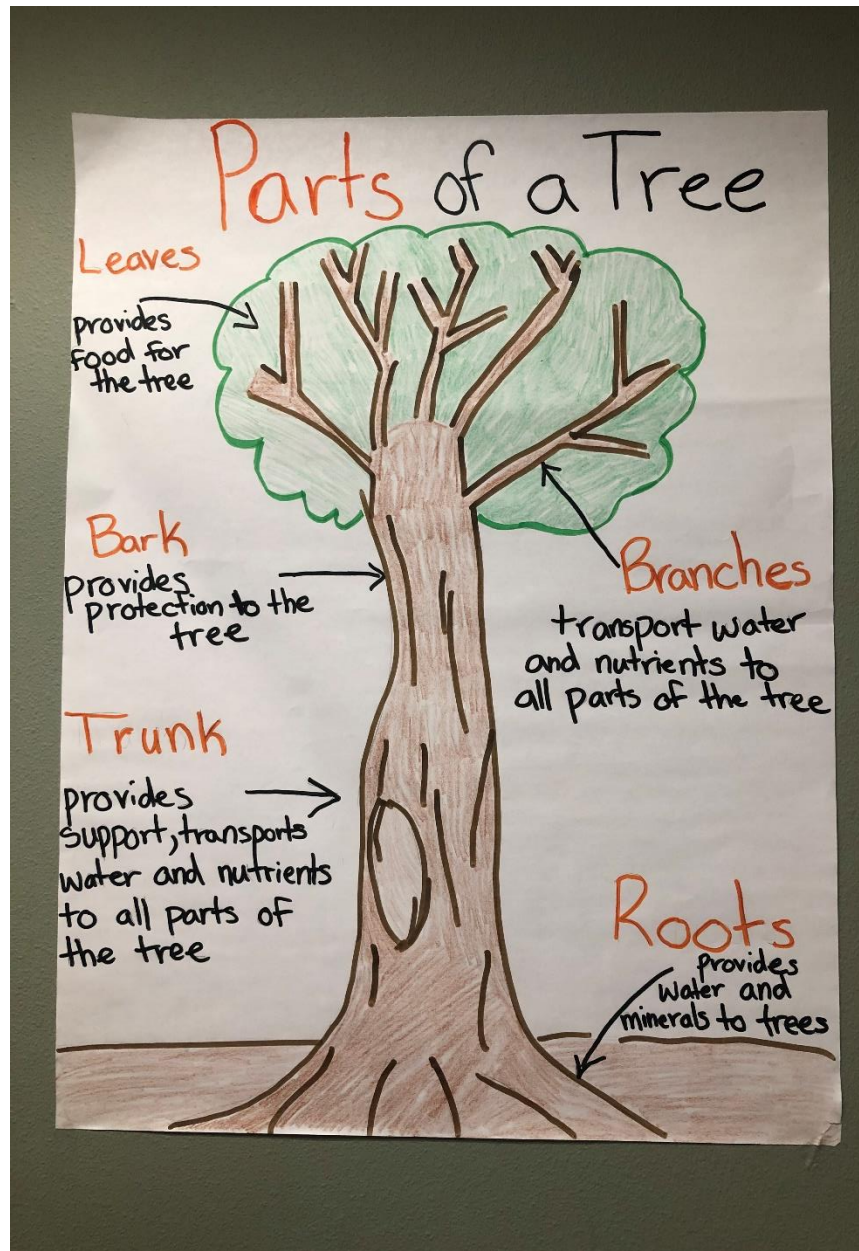 Parts of a Tree
Leaves
provides
food for
the tree
Bark
provides
protection to the
tree
Branches
transport water
and nutrients to
all parts of the tree
Trunk
provides
support, transports
water and nutrients
to all parts of
the tree
Roots
provides
water and
minerals to trees